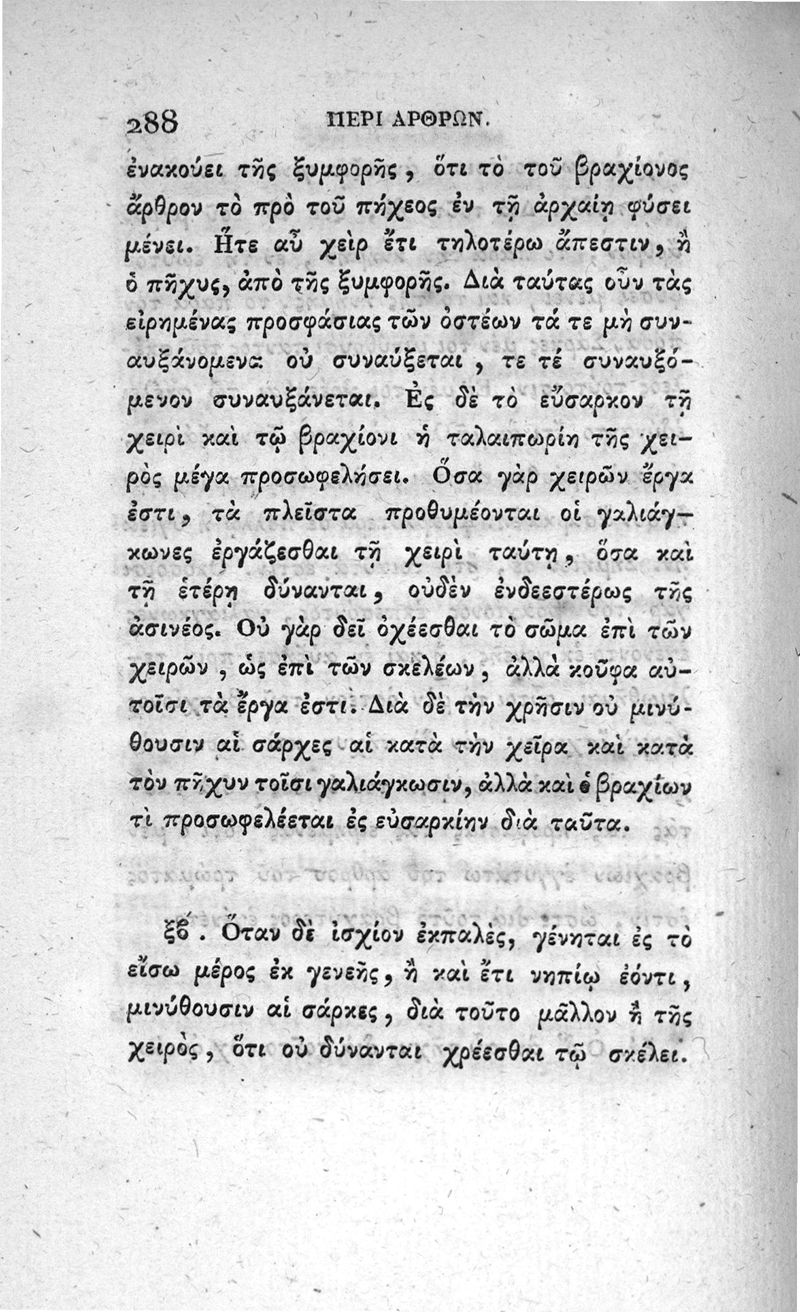 288
ΠΕΡΙ ΑΡΘΡΩΝ.
ἐνακούει τῆς ξυμφορῆς, ὅτι τὸ τοῦ βραχίονος
ἄρθρον τὸ πρὸ τοῦ πήχεος ἐν τῇ ἀρχαίῃ φύσει
μένει. Ἥτε αὖ χεὶρ ἔτι τηλοτέρω ἄπεστιν, ἢ
ὁ πῆχυς, ἀπὸ τῆς ξυμφορῆς. Διὰ ταύτας οὖν τὰς
εἰρημένας προσφάσιας τῶν ὀστέων τά τε μὴ συν-
αυξάνομενα οὐ συναύξεται, τε τέ συναυξό-
μενον συναυξάνεται. Ἐς δὲ τὸ εὔσαρκον τῇ
χειρὶ καὶ τῷ βραχίονι ἡ ταλαιπωρίη τῆς χει-
ρὸς μέγα προσωφελήσει. Ὅσα γὰρ χειρῶν ἔργα
ἐστι, τὰ πλεῖστα προθυμέονται οἱ γαλιάγ-
κωνες ἐργάζεσθαι τῇ χειρὶ ταύτῃ, ὅσα καὶ
τῇ ἑτέρῃ δύνανται, οὐδὲν ἐνδεεστέρως τῆς
ἀσινέος. Οὐ γὰρ δεῖ ὀχέεσθαι τὸ σῶμα ἐπὶ τῶν
χειρῶν, ὡς ἐπὶ τῶν σκελέων, ἀλλὰ κοῦφα αὐ-
τοῖσι τὰ ἔργα ἐστι. Διὰ δὲ τὴν χρῆσιν οὐ μινύ-
θουσιν αἱ σάρχες αἱ κατὰ τὴν χεῖρα καὶ κατὰ
τὸν πῆχυν τοῖσι γαλιάγκωσιν, ἀλλὰ καὶ ὁ βραχίων
τὶ προσωφελέεται ἐς εὐσαρκίην διὰ ταῦτα.
ξϐʹ. Ὅταν δὲ ἰσχίον ἐκπαλὲς, γένηται ἐς τὸ
εἴσω μέρος ἐκ γενεῆς, ἢ καὶ ἔτι νηπίῳ ἐόντι,
μινύθουσιν αἱ σάρκες, διὰ τοῦτο μᾶλλον ἢ τῆς
χειρὸς, ὅτι οὐ δύνανται χρέεσθαι τῷ σκέλει.